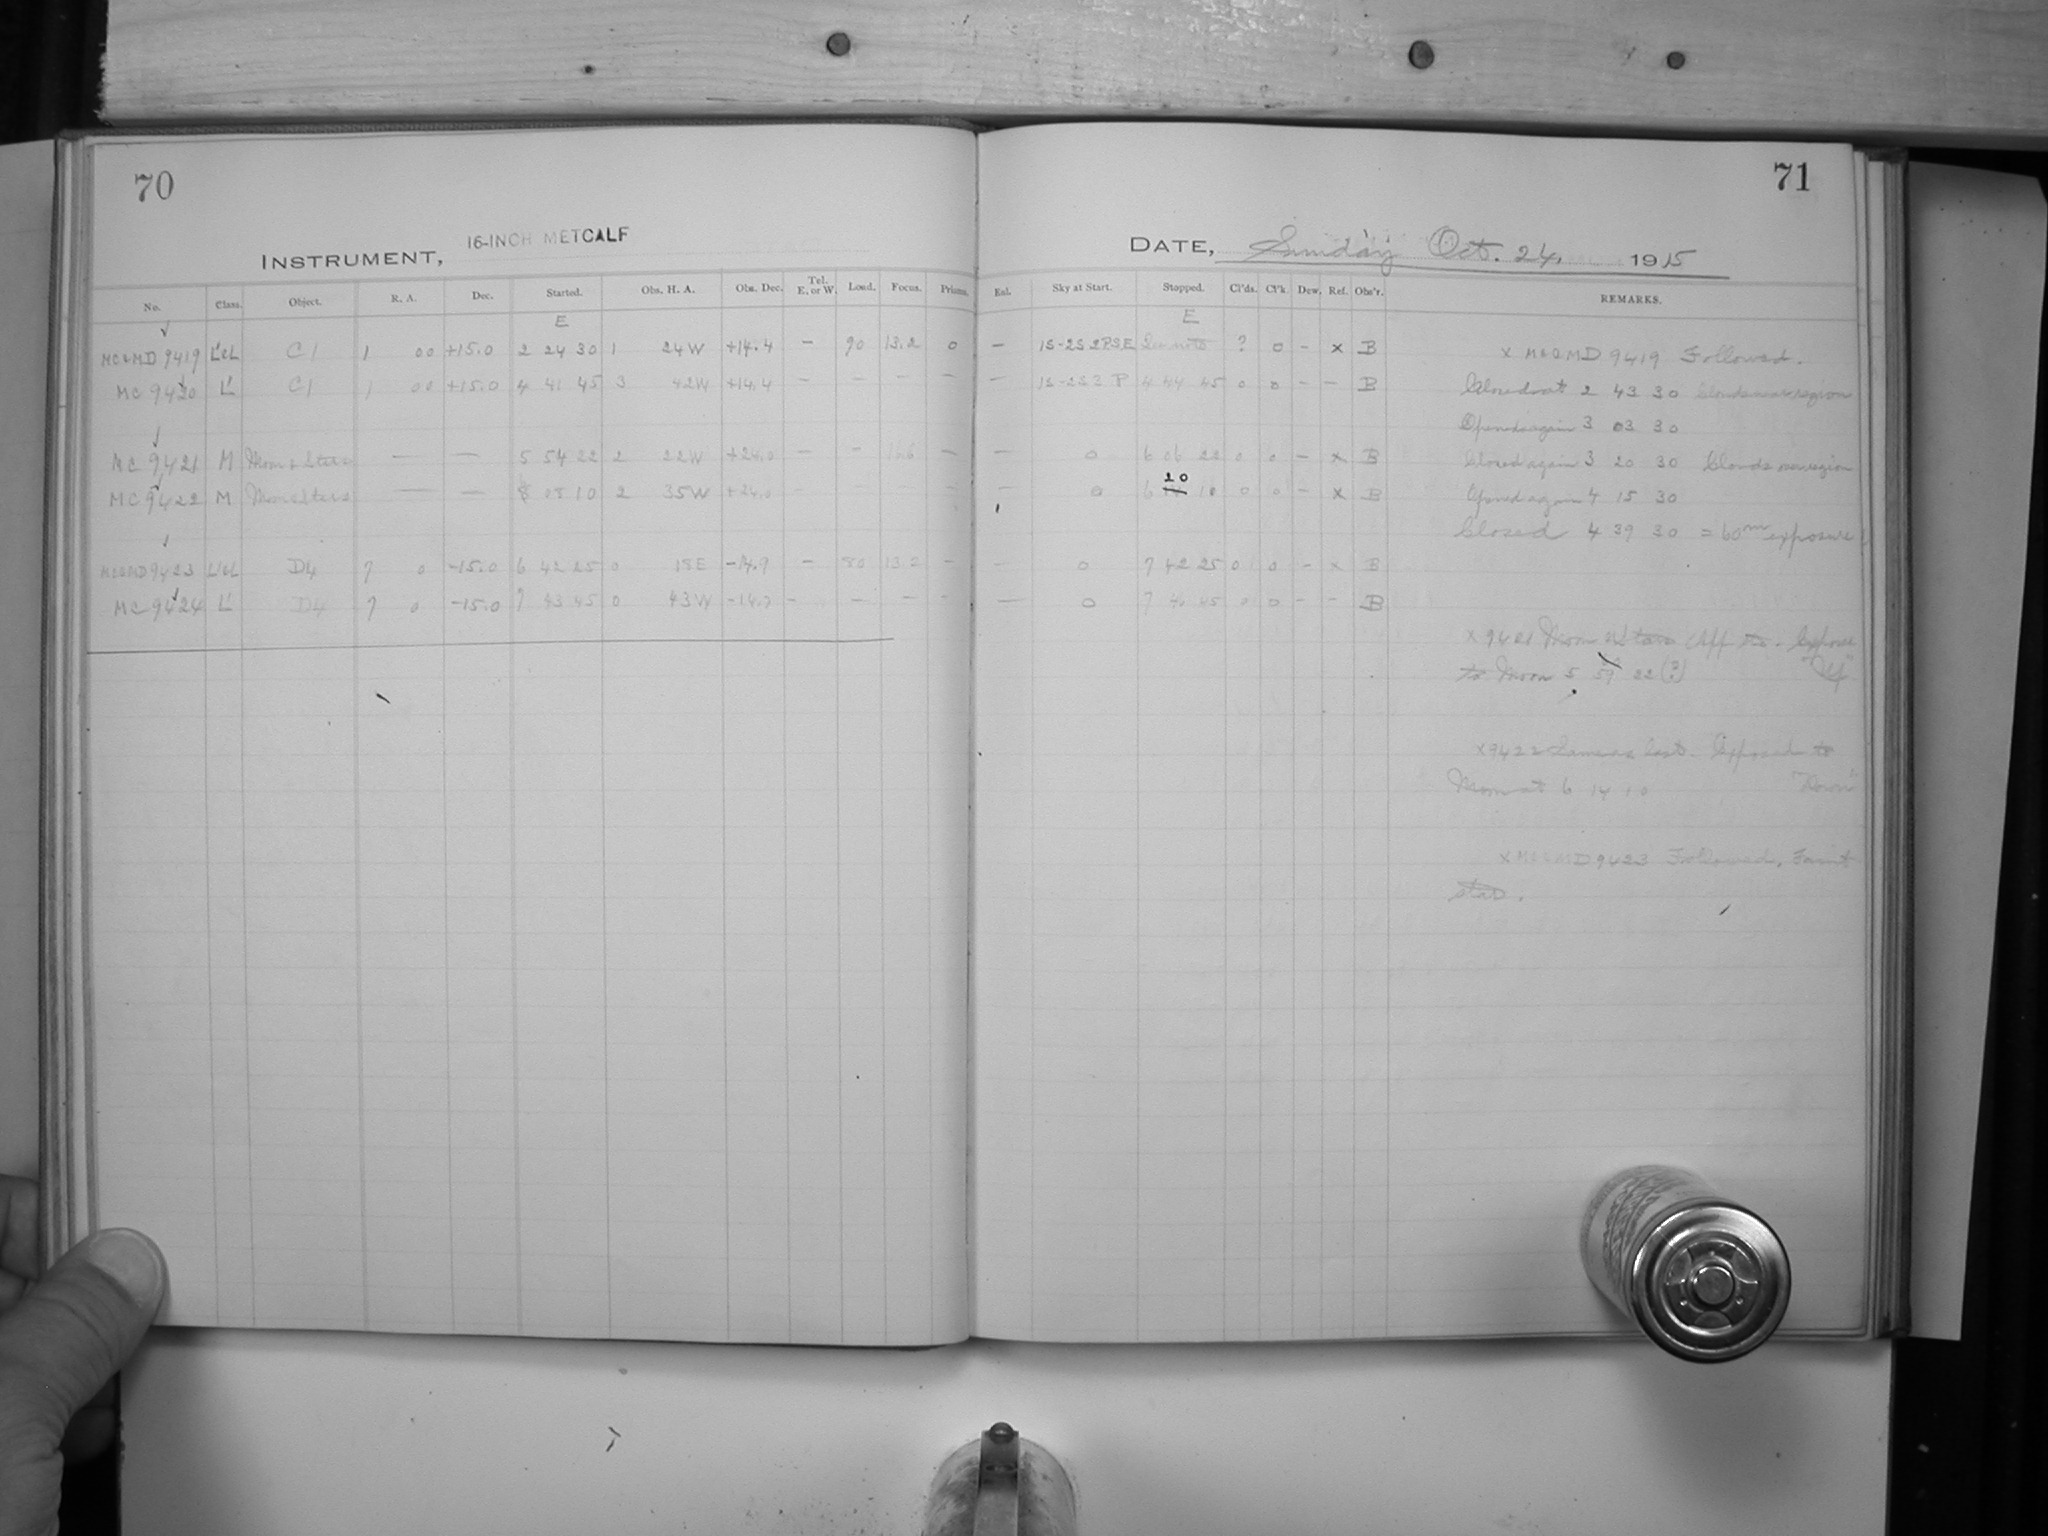 70
71
INSTRUMENT, 16-INCH METCALF
DATE, Sunday Oct. 24, 1915
No. Class. Object. R. A. Dec. Started. Obs. H. A. Obs. Dec. Tel. E. or W. Load. Focus. Prisms.
Eal. Sky at Start. Stopped. Cl'ds. Cl'k. Dew. Ref. Obs'r. REMARKS.
E
E
MC&MD 9419 L'&L C1 1 00 +15.0 2 24 30 1 24W +14.4 - 90 13.2 0 - 1S-2S 2PSE See note ? 0 - x B
MC 9420 L' C1 1 00 +15.0 4 41 45 3 42W +14.4 - - - - - 1S-2S3 P 4 44 45 0 0 - - B
MC 9421 M Moon & Stars - - 5 54 22 2 22W +24.0 - - - - 0 6 06 22 0 0 - x B
MC 9422 M Moon & Stars - - 08 10 2 35W +24.0 - - - 0 6 20 10 0 0 - x B
MC&MD 9423 L'&L D4 7 0 -15.0 6 42 25 0 18E -14.9 - 80 13.2 - - 0 7 42 25 0 0 - x B
MC 9424 L' D4 7 0 -15.0 7 43 45 0 43W -14.9 - - - - - 0 7 46 45 0 0 - - B
x MC&MD 9419 Followed.
Closed at 2 43 30 Clouds near region
Opened again 3 03 30
Closed again 3 20 30 Clouds over region
Opened again 4 15 30
Closed 4 39 30 = 60m exposure
x 9421 Moon & Stars
to Moon 5 59 22 (?)
x 9422 Same as last. Exposed to
Moon at 6 14 10 "Down"
x MC&MD 9423 Followed. Faint
star.